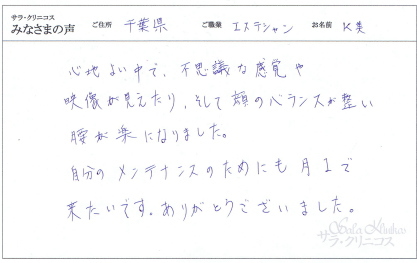 サラ・クリニコス
みなさまの声 ご住所 千葉県 ご職業 エステシャン お名前 K美
心地よい中で、不思議な感覚や
映像が見えたり、そして顔のバランスが整い
腰が楽になりました。
自分のメンテナンスのためにも月1で
来たいです。ありがとうございました。
サラ・クリニコス